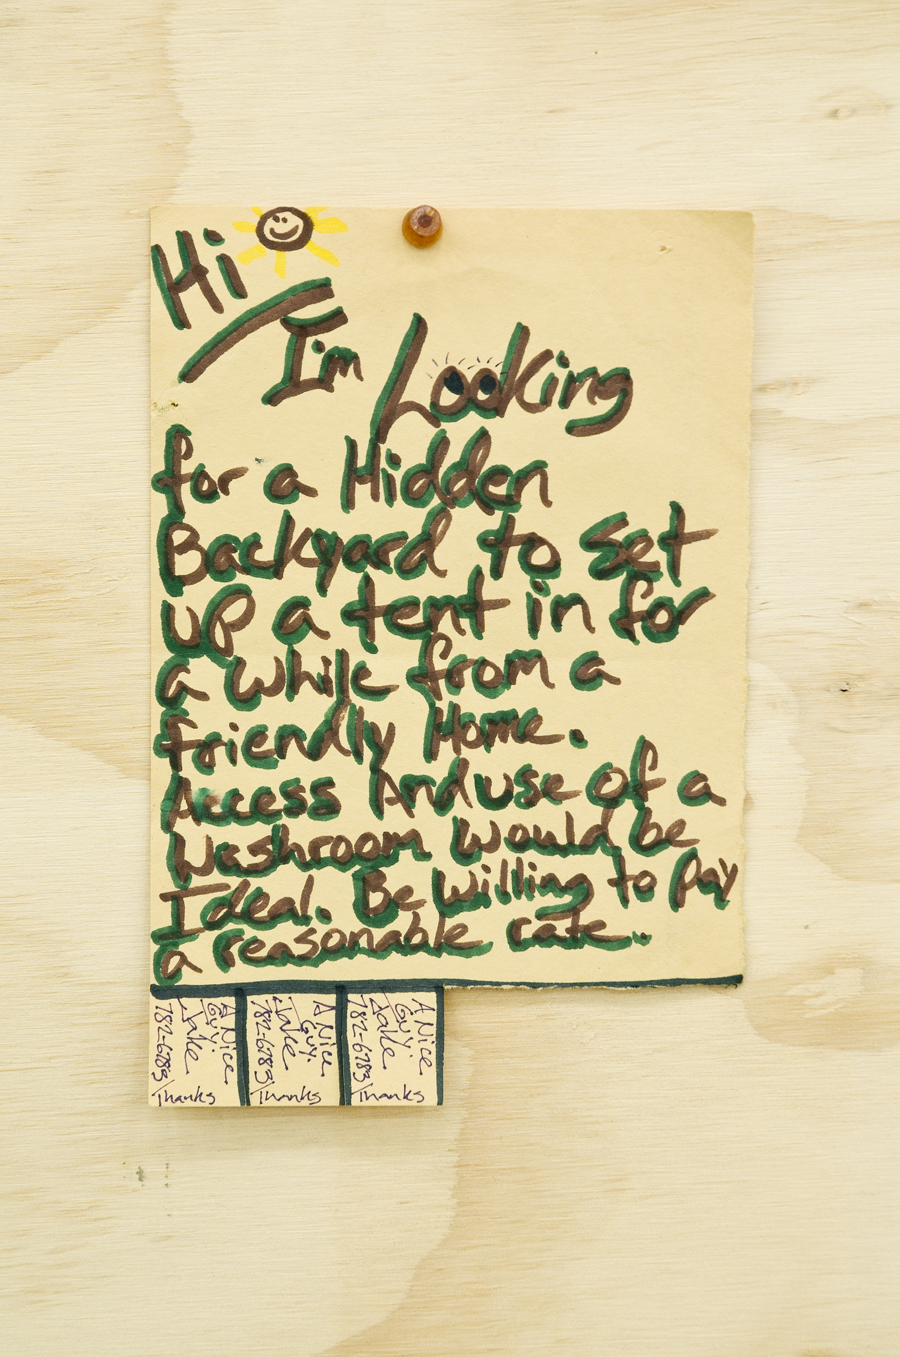 Hi
I'm Looking
for a Hidden
Backyard to set
up a tent in for
a while from a
friendly Home.
Access And use of a
Washroom would be
Ideal. Be willing to pay
a reasonable rate..
A Nice
Guy.
Jake
782-6783
Thanks
A Nice
Guy.
Jake
782-6783
Thanks
A Nice
Guy.
Jake
782-6783
Thanks